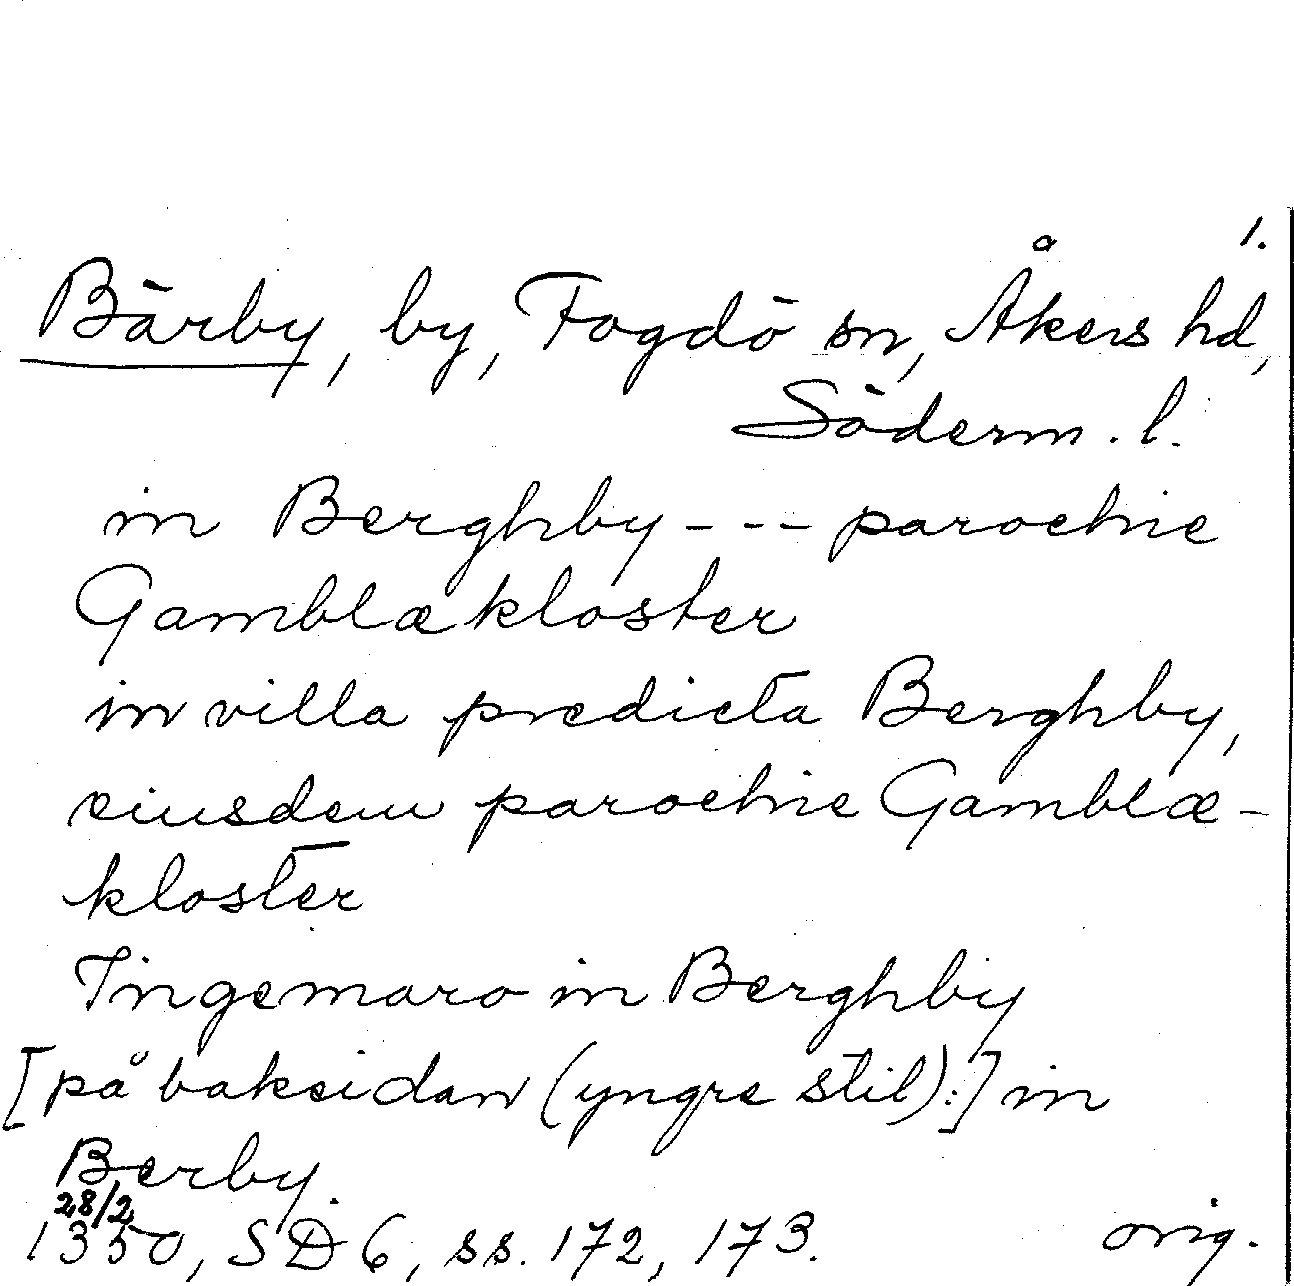 1.
Bärby, by, Fogdö sn, Åkers hd,
Söderm. l.
in Berghby --- parochie
Gamblækloster
in villa predicta Berghby,
eiusdem parochie Gamblæ-
kloster
Jngemaro in Berghby
[på baksidan (yngre stil):] in
Berby.
28/2
1350, SD 6, ss. 172, 173. orig.